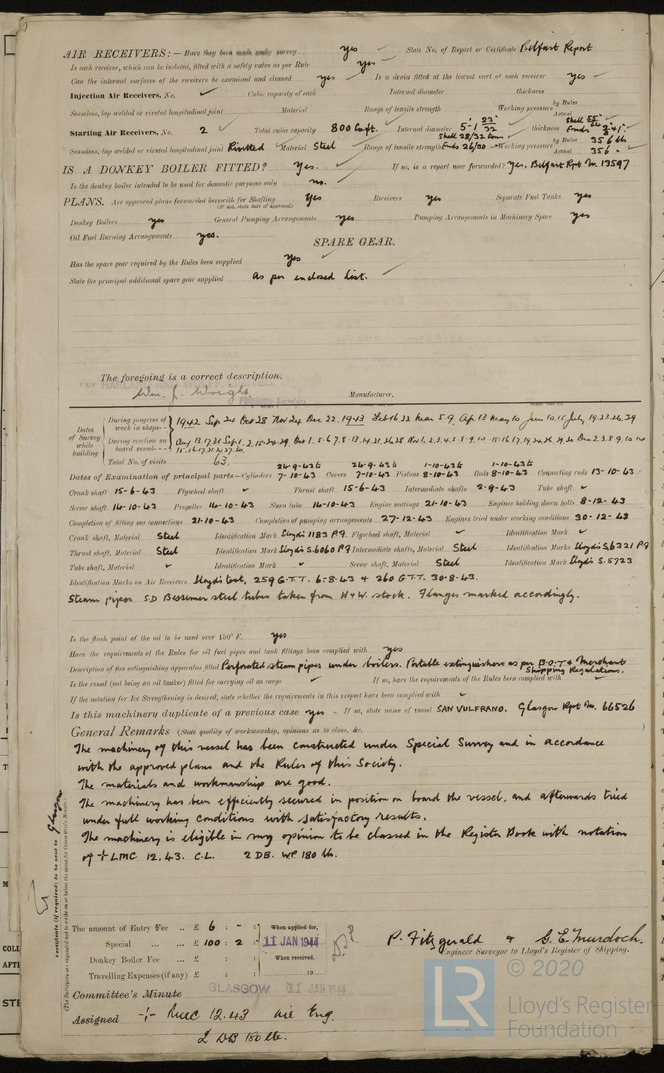 AIR RECEIVERS:— Have they been made under survey yes ✓ State No. of Report or Certificate Belfast Report
Is each receiver, which can be isolated, fitted with a safety valve as per Rule yes ✓
Can the internal surfaces of the receivers be examined and cleaned yes ✓ Is a drain fitted at the lowest part of each receiver yes ✓
Injection Air Receivers, No. ✓ Cubic capacity of each Internal diameter thickness
Seamless, lap welded or riveted longitudinal joint Material Range of tensile strength Working pressure by Rules Actual
Starting Air Receivers, No. 2 ✓ Total cubic capacity 800 C.ft. Internal diameter 5'-1 23/32" thickness Shell 55" Ends
Seamless, lap welded or riveted longitudinal joint Riveted Material Steel Range of tensile strength Shell 28/32 tons Ends 26/30 Working pressure by Rules 356 lb Actual 356 "
IS A DONKEY BOILER FITTED? Yes. ✓ If so, is a report now forwarded? Yes. Belfast Rpt No. 13597
Is the donkey boiler intended to be used for domestic purposes only no. ✓
PLANS. Are approved plans forwarded herewith for Shafting Yes Receivers Yes Separate Fuel Tanks Yes
(If not, state date of approval)
Donkey Boilers yes General Pumping Arrangements yes Pumping Arrangements in Machinery Space yes
Oil Fuel Burning Arrangements yes.
SPARE GEAR.
Has the spare gear required by the Rules been supplied Yes ✓
State the principal additional spare gear supplied As per enclosed list. ✓
The foregoing is a correct description,
Wm. J. Wright Manufacturer.
Dates of Survey while building
During progress of work in shops - - 1942 Sep 24 Oct 28 Nov 24 Dec 22, 1943 Feb 16 22 Mar 5. 9. Ap 13 May 10 Jun 10. 15 July 19. 23. 26. 29
During erection on board vessel - - - Aug 13. 17. 31 Sep 1. 2. 15. 24. 29. Oct 1. 5. 6. 7. 8.
Total No. of visits 63.
24-9-43 & 24-9-43 & 1-10-43 & 1-10-43 &
Dates of Examination of principal parts—Cylinders 7-10-43 Covers 7-10-43 Pistons 8-10-43 Rods 8-10-43 Connecting rods 13-10-43
Crank shaft 15-6-43 Flywheel shaft ✓ Thrust shaft 15-6-43 Intermediate shafts 2-9-43 Tube shaft ✓
Screw shaft 14-10-43 Propeller 14-10-43 Stern tube 14-10-43 Engine seatings 21-10-43 Engines holding down bolts 8-12-43
Completion of fitting sea connections 21-10-43 Completion of pumping arrangements 27-12-43 Engines tried under working conditions 30-12-43
Crank shaft, Material Steel Identification Mark Lloyd's 1183 P.9. Flywheel shaft, Material ✓ Identification Mark ✓
Thrust shaft, Material Steel Identification Mark Lloyd's S.6060 P.9 Intermediate shafts, Material Steel Identification Marks Lloyd's S.6321 P9
Tube shaft, Material ✓ Identification Mark ✓ Screw shaft, Material Steel Identification Mark Lloyd's S.5723
Identification Marks on Air Receivers Lloyds test, 259 G.T.T. 6-8-43 & 260 G.T.T. 30-8-43.
Steam pipes S.D Bessemer steel tubes taken from H & W. stock. Flanges marked accordingly.
Is the flash point of the oil to be used over 150° F. yes
Have the requirements of the Rules for oil fuel pipes and tank fittings been complied with yes
Description of fire extinguishing apparatus fitted Perforated steam pipes under boilers. Portable extinguishers as per B.O.T & Merchant Shipping Regulations.
Is the vessel (not being an oil tanker) fitted for carrying oil as cargo ✓ If so, have the requirements of the Rules been complied with ✓
If the notation for Ice Strengthening is desired, state whether the requirements in this respect have been complied with ✓
Is this machinery duplicate of a previous case yes - If so, state name of vessel SAN VULFRANO. Glasgow Rpt No. 66526
General Remarks (State quality of workmanship, opinions as to class, &c.
The machinery of this vessel has been constructed under Special Survey and in accordance
with the approved plans and the Rules of this Society.
The materials and workmanship are good.
The machinery has been efficiently secured in position on board the vessel, and afterwards tried
under full working conditions with satisfactory results.
The machinery is eligible in my opinion to be classed in the Register Book with notation
of + LMC 12. 43. C.L. 2 DB. WP. 180 lb.
The amount of Entry Fee .. £ 6 : - : When applied for,
Special ... ... £ 100 : 2 - : 11 JAN 1944
Donkey Boiler Fee ... £ : : When received,
Travelling Expenses (if any) £ : : 19
P. Fitzgerald & G. E. Murdoch.
Engineer Surveyor to Lloyd's Register of Shipping.
Committee's Minute GLASGOW 11 JAN 1944
Assigned + LMC 12. 43
2 DB 180 lb.
© 2020
LR
Lloyd's Register
Foundation